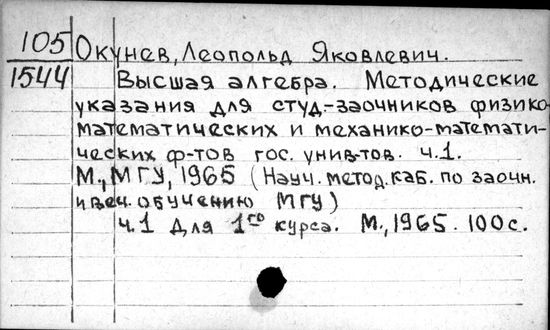 105 Окунев, Леопольд Яковлевич.
1544 Высшая алгебра. Методические
указания для студ.-заочников физико-
математических и механико-математи-
ческих ф-тов гос. унив-тов. ч.1.
М., МГУ, 1965 (Науч. метод. каб. по заочн.
и веч. обучению МГУ)
ч.1 Для 1го курса. М., 1965. 100с.